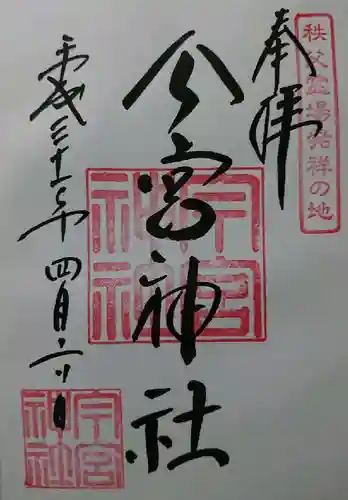 秩父霊場発祥の地
奉拝
今宮神社
平成三十一年四月六日
今宮神社
今宮神社